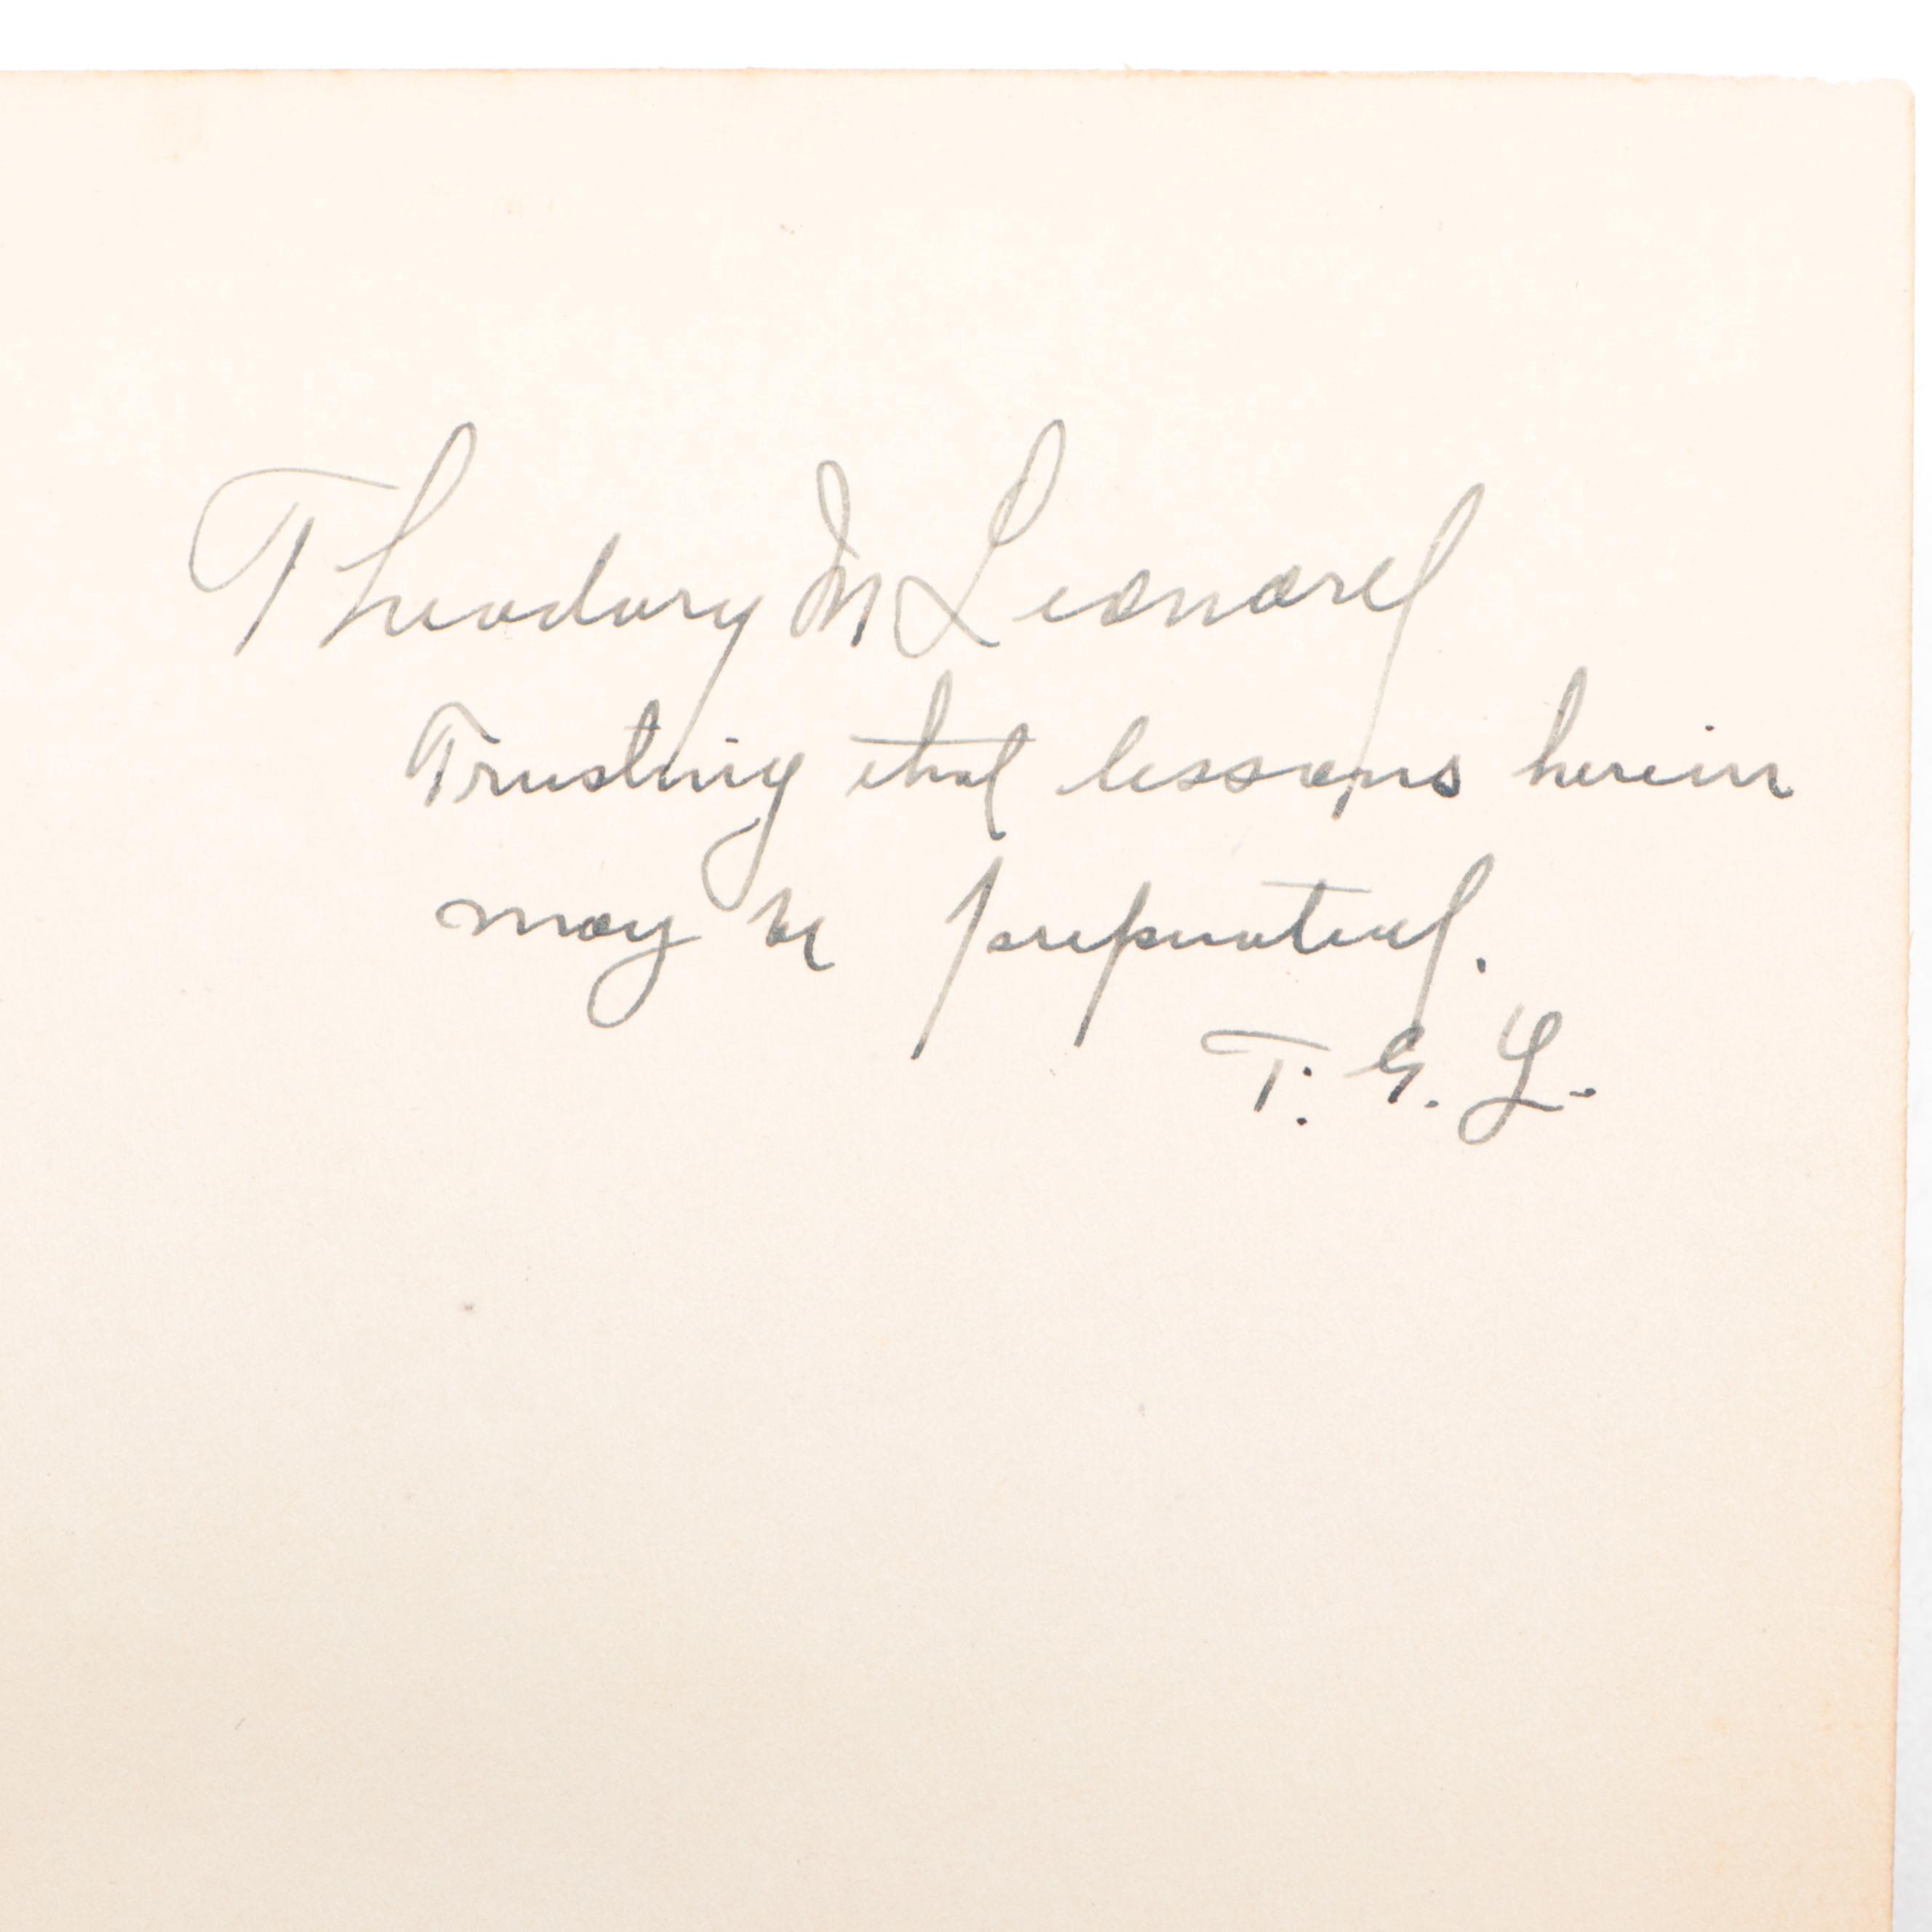 Theodory M Leonard
Trusting that lessons herein
may be perpetuated.
T. G. L.